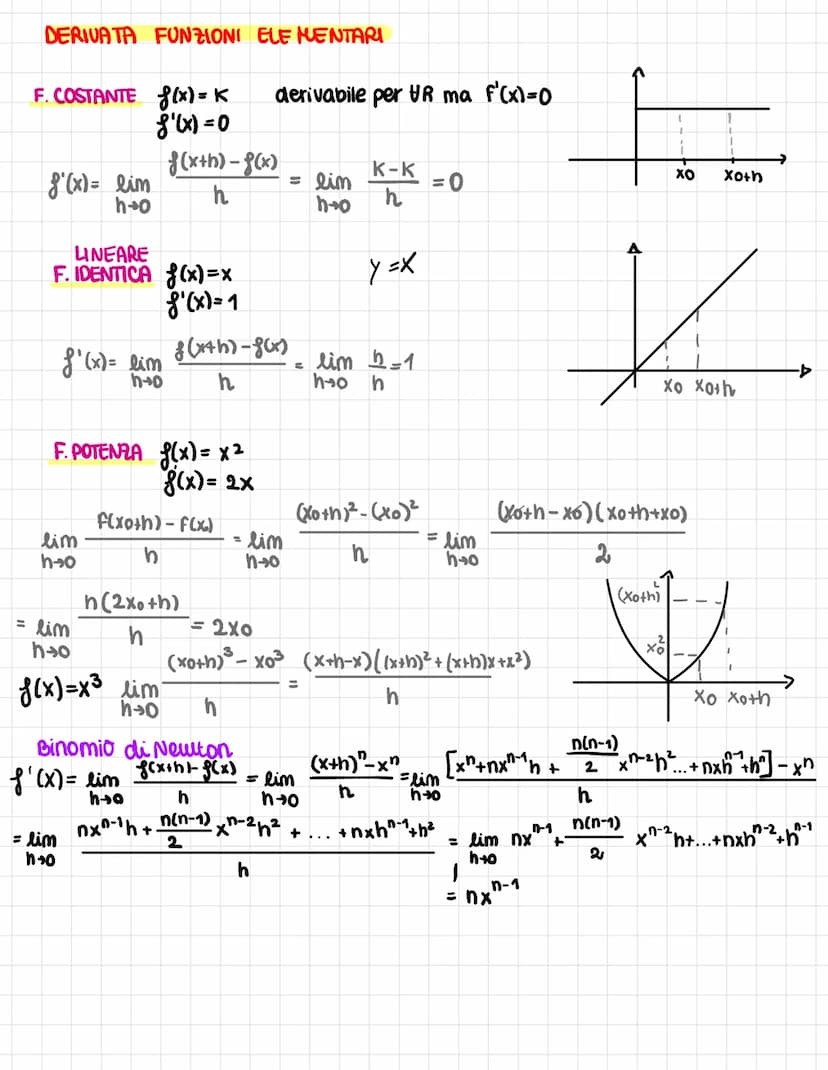 DERIVATA FUNZIONI ELEMENTARI
F. COSTANTE f(x) = K derivabile per ∀R ma f'(x)=0
f'(x) = 0
f'(x) = lim h→0 (f(x+h) - f(x))/h = lim h→0 (K-K)/h = 0
x0 x0+h
LINEARE
F. IDENTICA f(x) = x y = x
f'(x) = 1
f'(x) = lim h→0 (f(x+h) - f(x))/h = lim h→0 h/h = 1
x0 x0+h
F. POTENZA f(x) = x²
f'(x) = 2x
lim h→0 (f(x0+h) - f(x0))/h = lim h→0 ((x0+h)² - (x0)²)/h = lim h→0 (x0+h-x0)(x0+h+x0)/2
= lim h→0 h(2x0+h)/h = 2x0
(x0+h)²
x0²
x0 x0+h
f(x) = x³ lim h→0 ((x0+h)³ - x0³)/h = (x+h-x)((x+h)²+(x+h)x+x²)/h
Binomio di Newton
f'(x) = lim h→0 (f(x+h) - f(x))/h = lim h→0 ((x+h)ⁿ - xⁿ)/h = lim h→0 ([xⁿ + nxⁿ⁻¹h + n(n-1)/2 xⁿ⁻²h² ... + nxhⁿ⁻¹ + hⁿ] - xⁿ)/h
= lim h→0 (nxⁿ⁻¹h + n(n-1)/2 xⁿ⁻²h² + ... + nxhⁿ⁻¹ + h²)/h = lim h→0 nxⁿ⁻¹ + n(n-1)/2 xⁿ⁻²h + ... + nxhⁿ⁻² + hⁿ⁻¹
= nxⁿ⁻¹